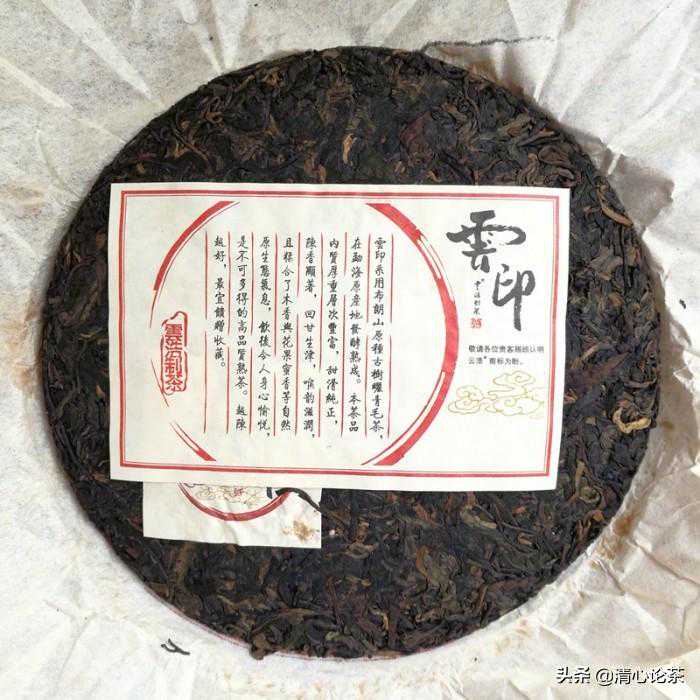 雲印
敬请各位贵客
商标为盼。
雲印系用布朗山原種古樹曬青毛茶,
在勐海原產地發酵熟成。本茶品
內質厚重層次豐富,甜滑純正,
陳香顯著,回甘生津,喉韵滋潤,
且糅合了木香與花果蜜香等自然
原生態氣息,飲後令人身心愉悅,
是不可多得的高品質熟茶。越陳
越好,最宜饋贈收藏。
头条 @清心论茶